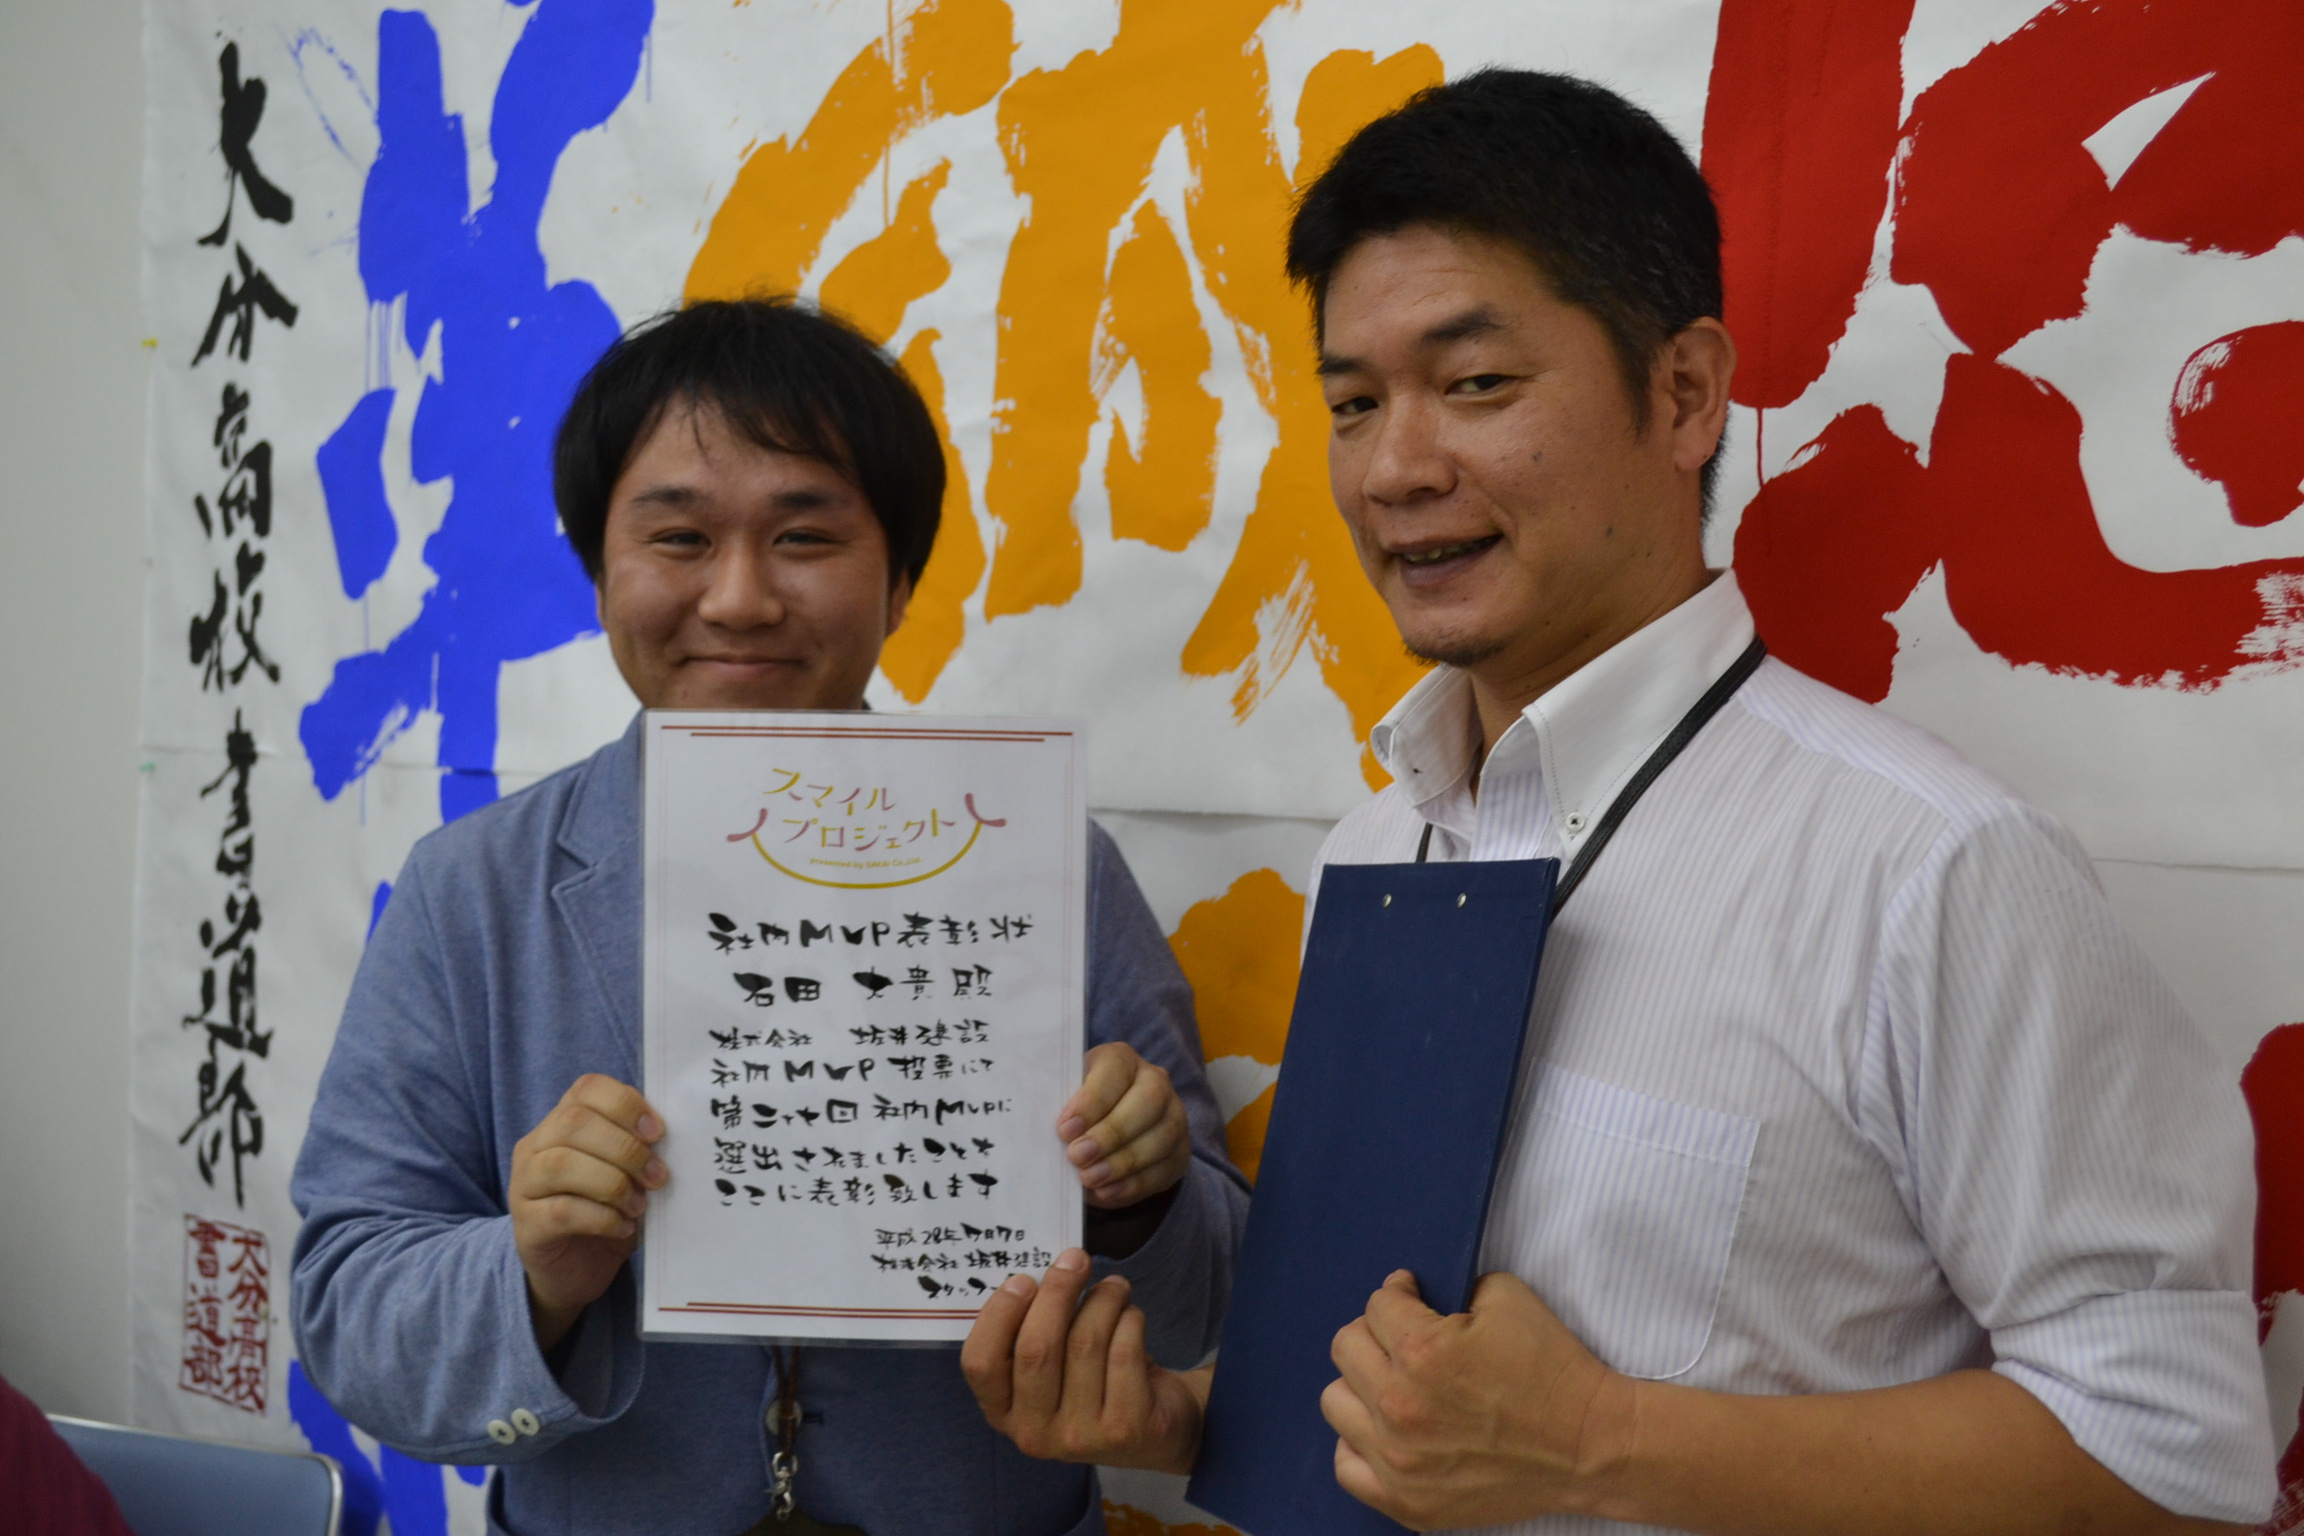 大分高校書道部
大分高校
書道部
スマイル
プロジェクト
presented by SAKAI Co.,Ltd.
社内MVP表彰状
石田 大貴 殿
株式会社 坂井建設
社内MVP投票にて
第二十七回 社内MVPに
選出されましたことを
ここに表彰致します
平成28年7月7日
株式会社 坂井建設
スタッフ一